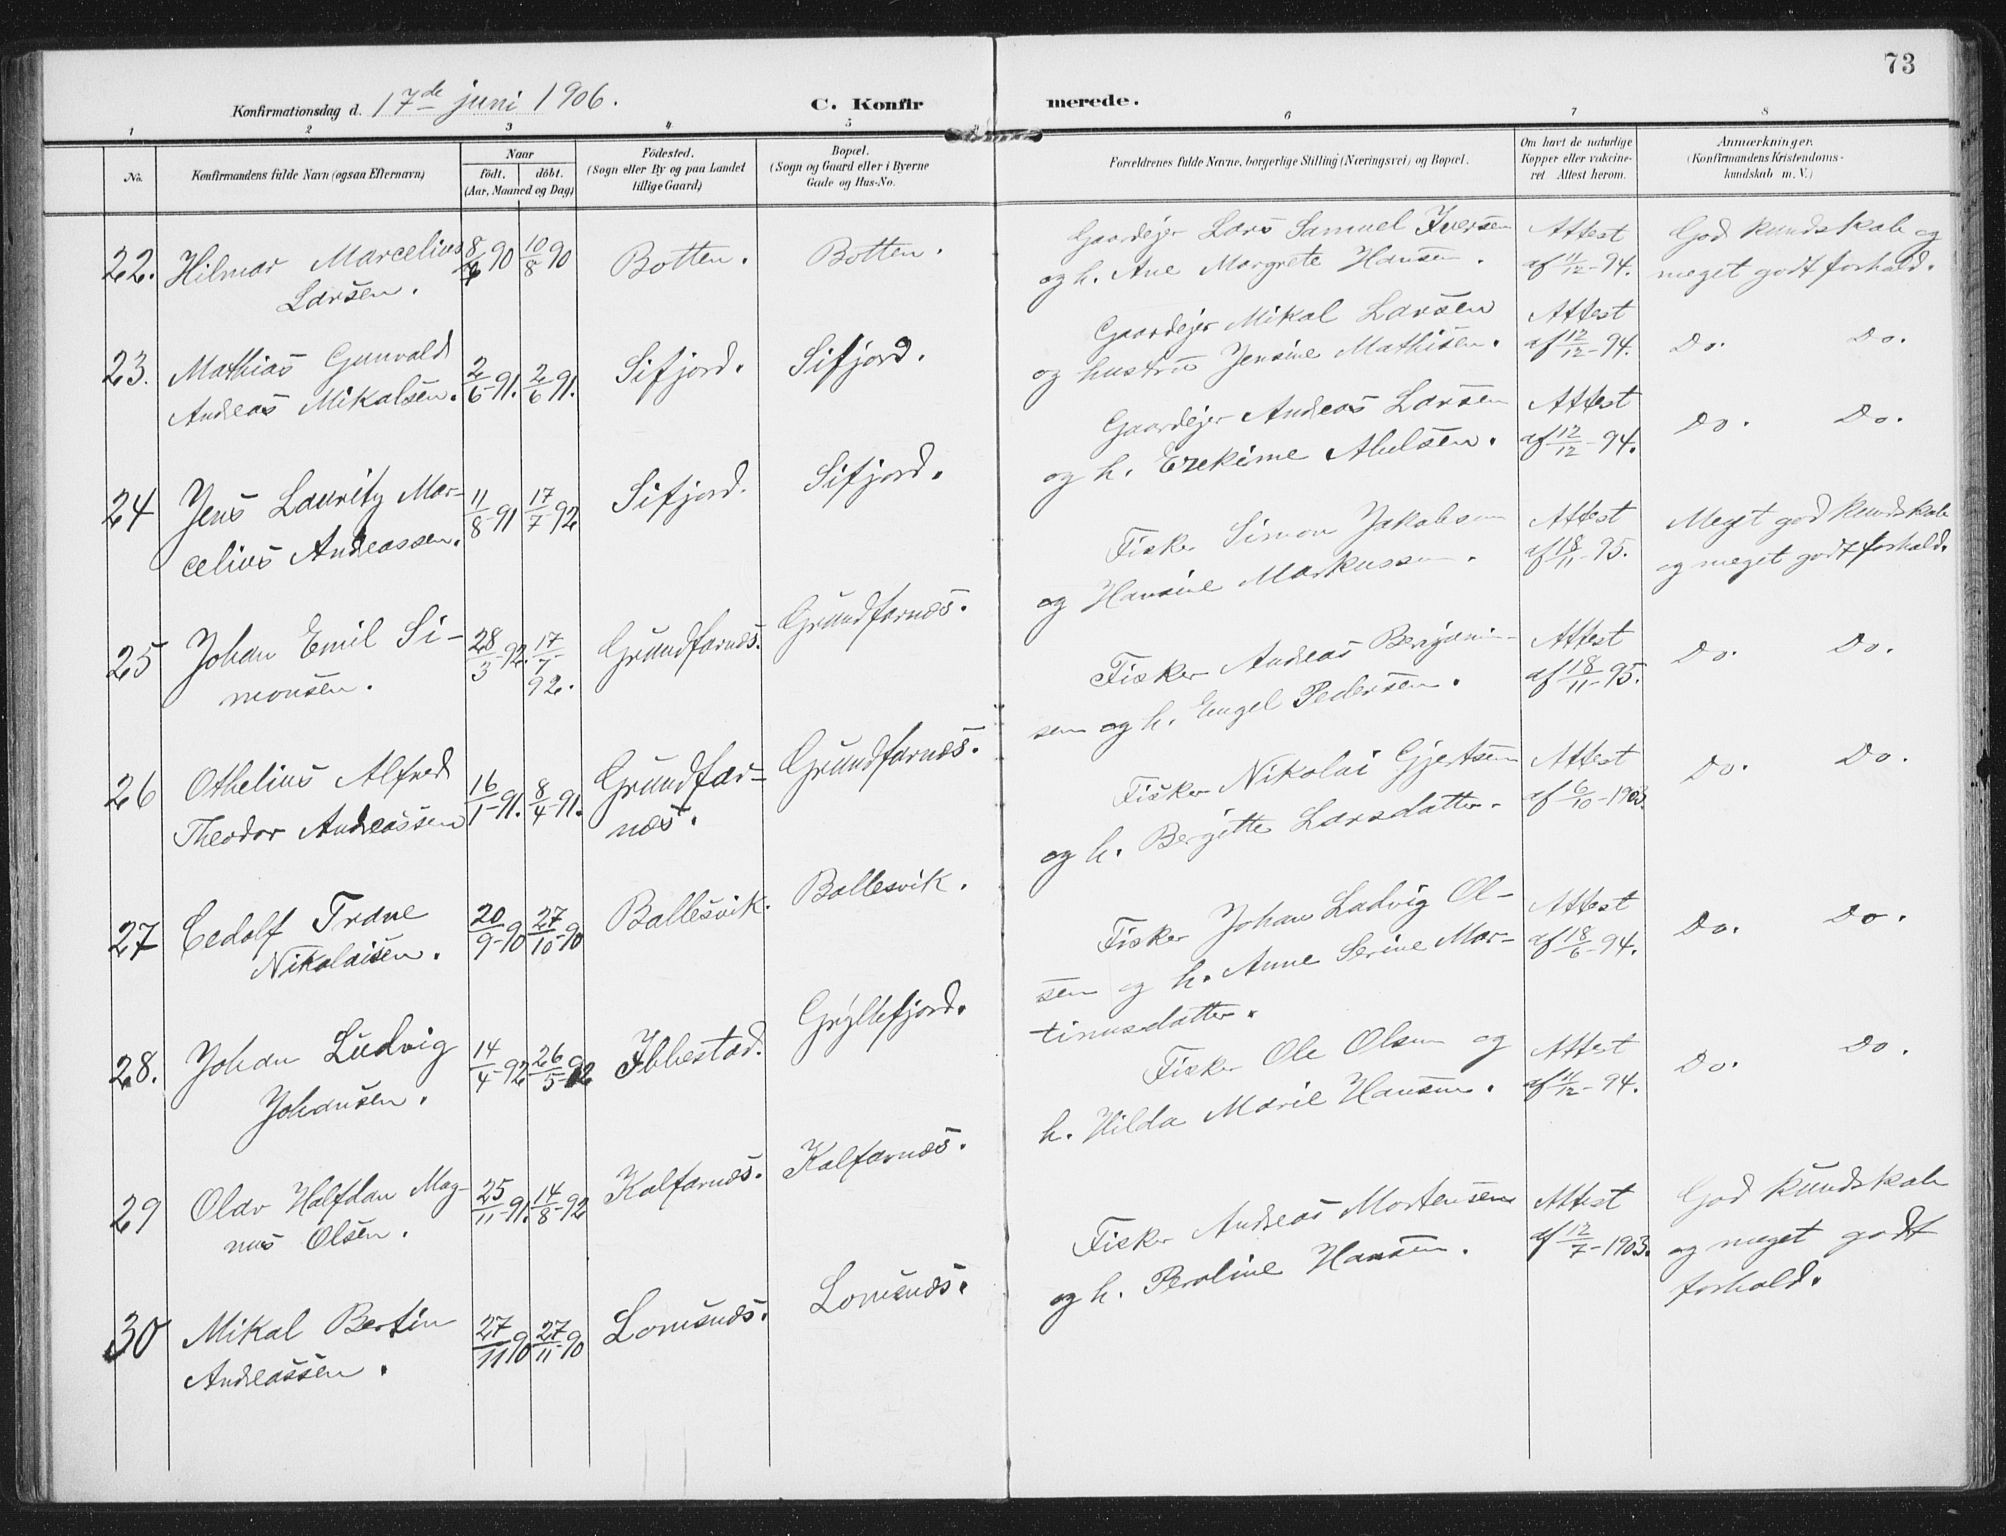 73
Konfirmationsdag d. 17de juni 1906. C. Konfir merede.
1 2 3 4 5 6 7 8
No. Konfirmandens fulde Navn (ogsaa Efternavn) Naar født. døbt. (Aar, Maaned og Dag) Fødested. (Sogn eller By og paa Landet tillige Gaard) Bopæl. (Sogn og Gaard eller i Byerne Gade og Hus-No. Forældrenes fulde Navne, borgerlige Stilling (Næringsvei) og Bopæl. Om havt de naturlige Kopper eller vakcineret Attest herom. Anmærkninger. (Konfirmandens Kristendomskundskab m. V.)
22. Hilmar Marcelius 8/7 90 10/8 90 Botten. Botten. Gaardejer Lars Samuel Iversen Attest God kundskab og
Larsen. og h. Ane Margrete Hansen. af 11/12-94. meget godt forhold.
23. Mathias Gunvald 2/6-91. 2/6 91. Sifjord. Sifjord. Gaardejer Mikal Larsen Attest Do. Do.
Andreas Mikalsen. og hustru Jensine Mathisen. af 12/12-94.
24 Jens Lauritz Mar- 11/8-91 17/7-92 Sifjord. Sifjord. Gaardejer Andreas Larsen Attest Do. Do.
celius Andreassen. og h. Erekime Abelsen. af 12/12-94.
25 Johan Emil Si- 28/3-92. 17/7-92. Grundfarnes. Grundfarnes. Fisker Simon Jakobsen Attest Meget god kundskab
monsen. og Hansine Markussen. af 18/11-95. og meget godt forhold.
26 Othelius Alfred 16/1-91. 8/4-91. Grundfar- Grundfarnæs. Fisker Andreas Benjamin- Attest Do. Do.
Theodor Andreassen næs. sen og h. Engel Pedersen. af 18/11-95.
27 Cedolf Trane 20/9-90 27/10-90 Ballesvik. Ballesvik. Fisker Nikolai Gjertsen Attest Do. Do.
Nikolaisen. og h. Bergitte Larsdatter. af 6/10-1903.
28. Johan Ludvig 14/4-92 26/5-92 Ibbestad. Gryllefjord. Fisker Johan Ludvig Ol- Attest Do. Do.
Johansen. sen og h. Anne Serine Mar- af 18/6-94.
tinusdatter.
29 Olav Halfdan Mag- 25/11-91. 14/8-92 Kalfarnes. Kalfarnæs. Fisker Ole Olsen og Attest Do. Do.
nus Olsen. h. Hilda Marie Hansen. af 11/12-94.
30 Mikal Bertin 27/11 90 27/11-90 Lomsnæs. Lomsnæs. Fisker Andreas Mortensen Attest God Kundskab
Andreassen. og h. Peroline Hansen. af 12/7-1903. og meget godt
forhold.